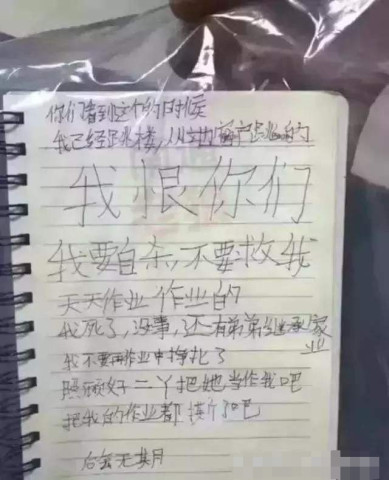 你们看到这个的时候
我已经跳楼,从我窗户跳的
我恨你们
我要自杀,不要救我
天天作业作业的
我死了,没事,还有弟弟继承家业
我不要再作业中挣扎了
照顾好二丫把她当作我吧
把我的作业都撕了吧
后会无期